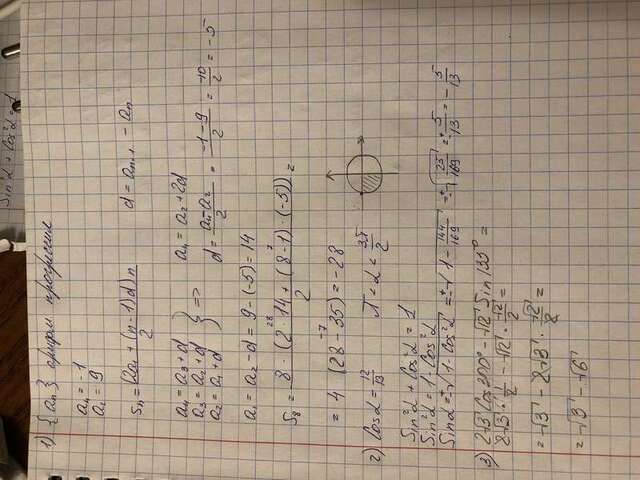 Sin²α + Cos²α = 1
1) {an} арифм прогрессия
a₄ = -1
a₂ = 9
Sn = (2a₁ + (n-1)d)n / 2    d = an+1 - an
a₄ = a₃ + d    a₄ = a₂ + 2d
a₃ = a₂ + d } =>
a₂ = a₁ + d    d = (a₄ - a₂)/2 = (-1-9)/2 = -10/2 = -5
a₁ = a₂ - d = 9 - (-5) = 14
28 7
S₈ = 8 · (2 · 14 + (8-1) · (-5)) / 2 =
-7
= 4 (28 - 35) = -28
2) Cosα = 12/13    π < α < 3π/2
Sin²α + Cos²α = 1
Sin²α = 1 - Cos²α
Sinα = ±√(1 - Cos²α) = ±√(1 - 144/169) = ±√(25/169) = ±5/13 = -5/13
3) 2√3 Cos300° - √12 Sin135° =
2√3 · 1/2 - √12 · √2/2 =
= √3 - 2√3 · √2/2 =
= √3 - √6